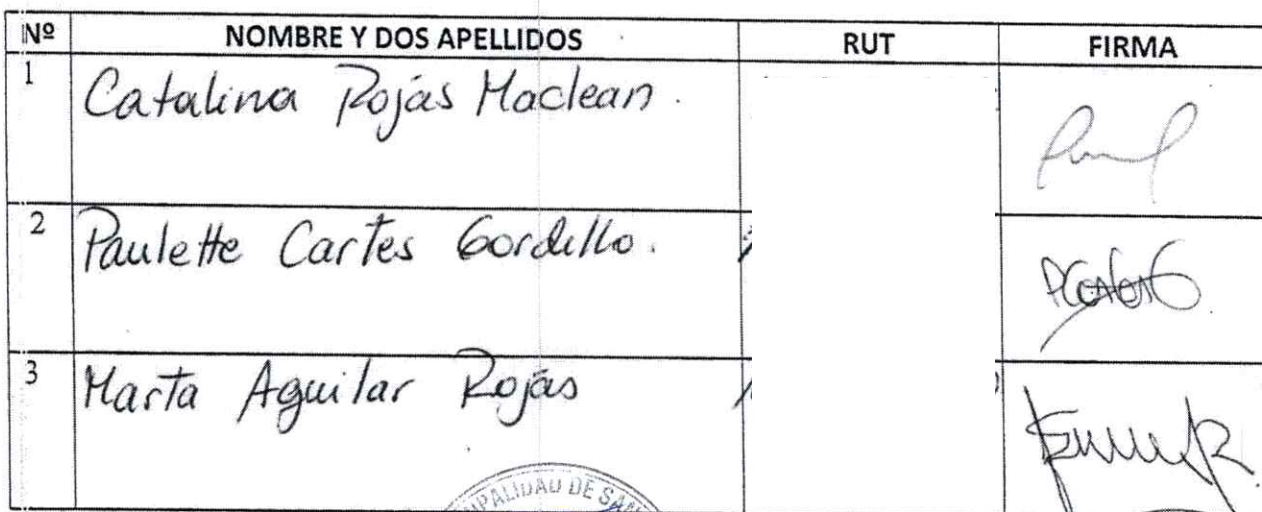 Nº NOMBRE Y DOS APELLIDOS RUT FIRMA
1 Catalina Rojas Maclean.
2 Paulette Cartes Gordillo.
3 Marta Aguilar Rojas
DE